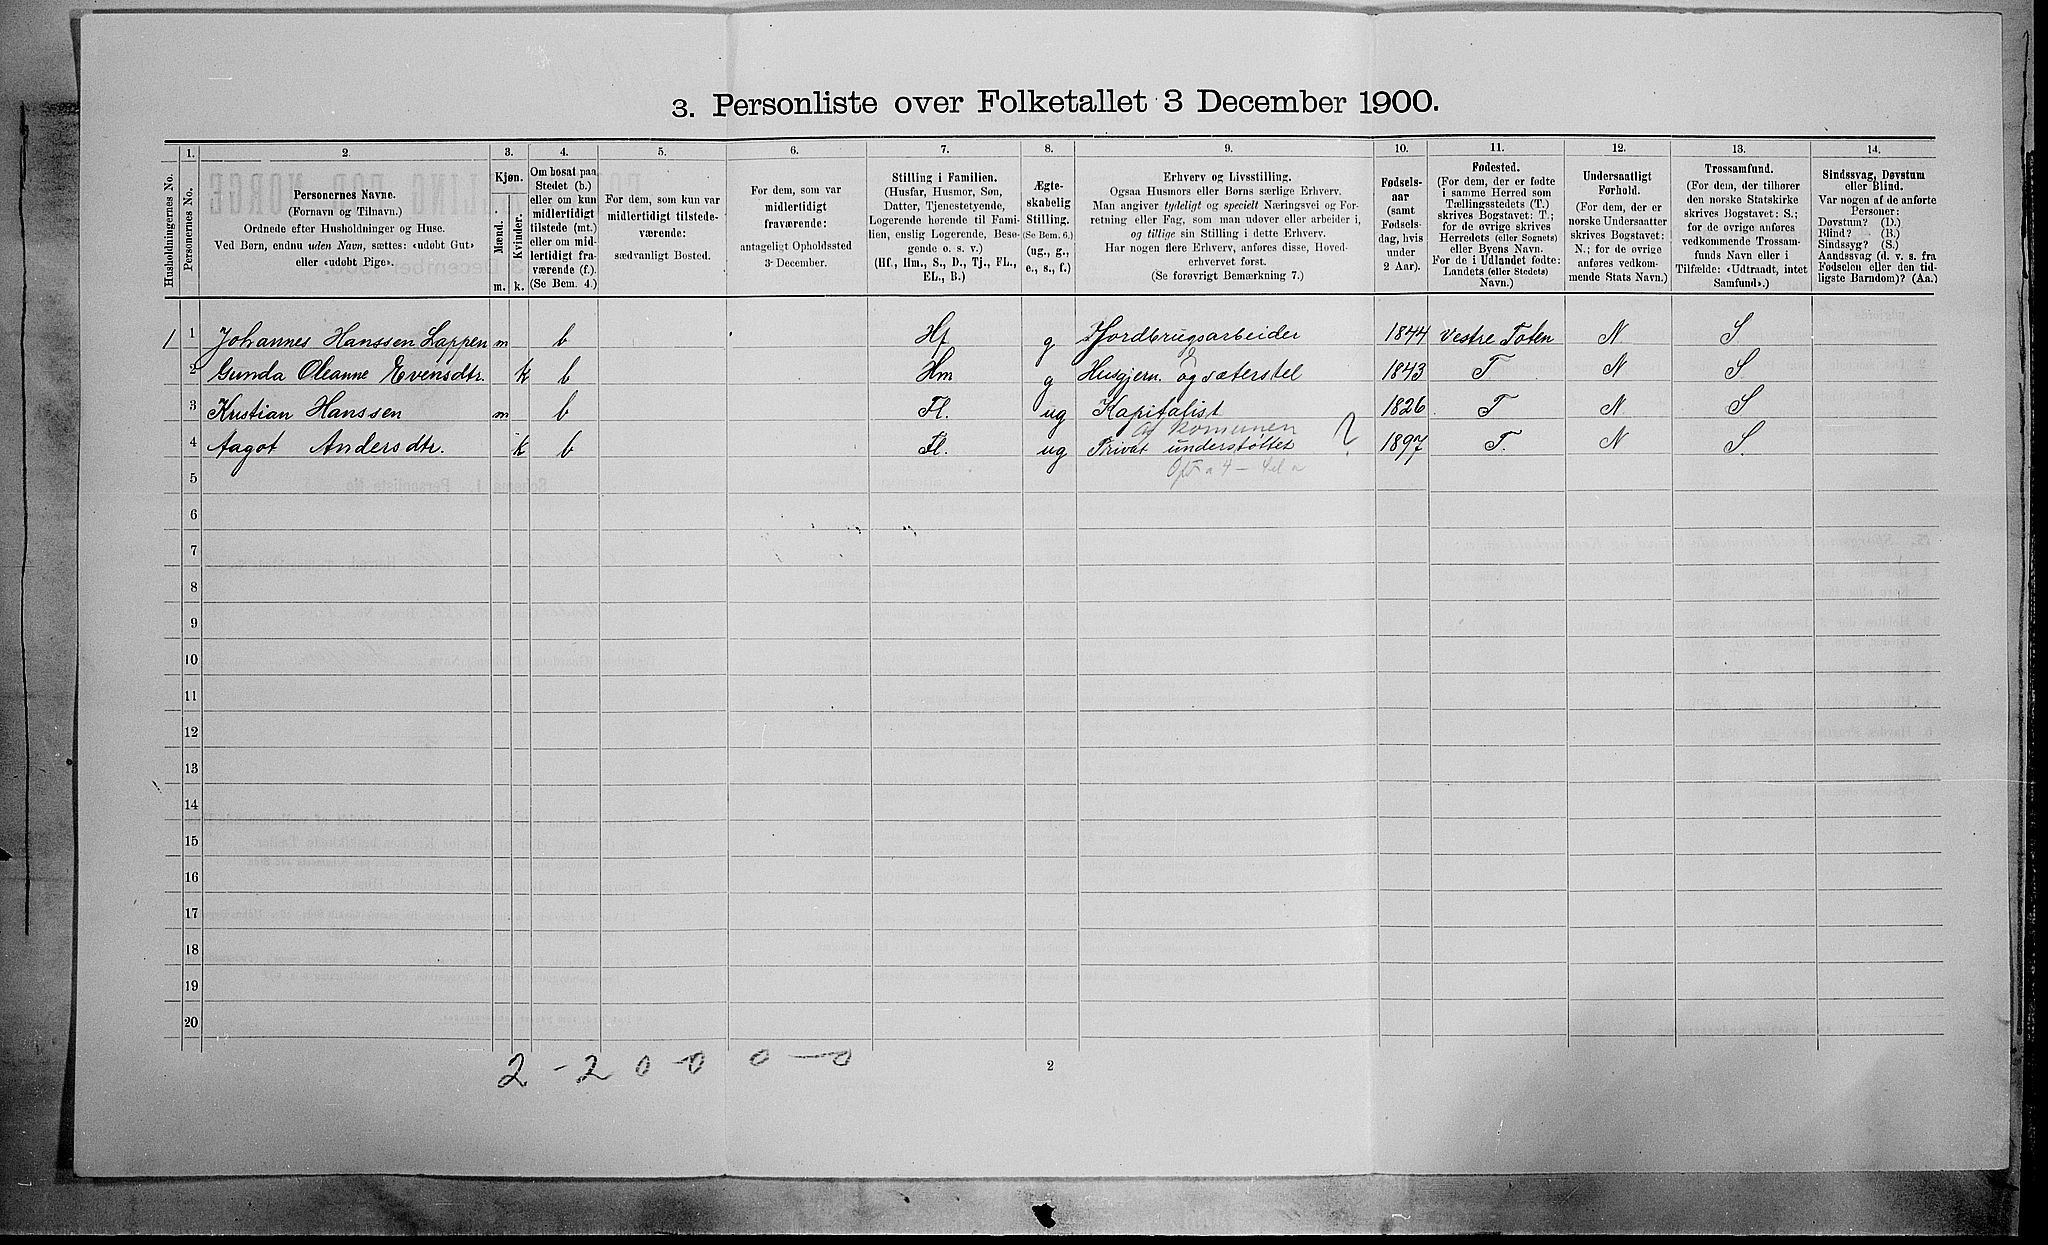 3. Personliste over Folketallet 3 December 1900.
1. 2. 3. 4. 5. 6. 7. 8. 9. 10. 11. 12. 13. 14.
Husholdningernes No.
Personernes No.
Personernes Navne.
(Fornavn og Tilnavn.)
Ordnede efter Husholdninger og Huse.
Ved Børn, endnu uden Navn, sættes: «udøbt Gut»
eller «udøbt Pige».
Kjøn.
Mænd.
Kvinder.
m. k.
Om bosat paa
Stedet (b.)
eller om kun
midlertidigt
tilstede (mt.)
eller om mid-
lertidigt fra-
værende (f.).
(Se Bem. 4.)
For dem, som kun var
midlertidigt tilstede-
værende:
sædvanligt Bosted.
For dem, som var
midlertidigt
fraværende:
antageligt Opholdssted
3 December.
Stilling i Familien.
(Husfar, Husmor, Søn,
Datter, Tjenestetyende,
Logerende hørende til Fami-
lien, enslig Logerende, Besø-
gende o. s. v.)
(Hf., Hm., S., D., Tj., FL.,
EL., B.)
Ægte-
skabelig
Stilling.
(Se Bem. 6.)
(ug., g.,
e., s., f.)
Erhverv og Livsstilling.
Ogsaa Husmors eller Børns særlige Erhverv.
Man angiver tydeligt og specielt Næringsvei og For-
retning eller Fag, som man udøver eller arbeider i,
og tillige sin Stilling i dette Erhverv.
Har nogen flere Erhverv, anføres disse, Hoved-
erhvervet først.
(Se forøvrigt Bemærkning 7.)
Fødsels-
aar
(samt
Fødsels-
dag, hvis
under
2 Aar).
Fødested.
(For dem, der er fødte
i samme Herred som
Tællingsstedets (T.)
skrives Bogstavet: T.;
for de øvrige skrives
Herredets (eller Sognets)
eller Byens Navn.
For de i Udlandet fødte:
Landets (eller Stedets)
Navn.)
Undersaatligt
Forhold.
(For dem, der er
norske Undersaatter
skrives Bogstavet:
N.; for de øvrige
anføres vedkom-
mende Stats Navn.)
Trossamfund.
(For dem, der tilhører
den norske Statskirke
skrives Bogstavet: S.;
for de øvrige anføres
vedkommende Trossam-
funds Navn eller i
Tilfælde: «Udtraadt, intet
Samfund».)
Sindssvag, Døvstum
eller Blind.
Var nogen af de anførte
Personer:
Døvstum? (D.)
Blind? (B.)
Sindssyg? (S.)
Aandssvag (d. v. s. fra
Fødselen eller den tid-
ligste Barndom)? (Aa.)
1 1 Johannes Hanssen Lappen m b Hf g Jordbrugsarbeider 1844 Vestre Toten N S
2 Gunda Oleanne Evensdtr. k b Hm g Husgjern. og sæterstel 1843 T. N S
3 Kristian Hanssen m b Fl. ug Kapitalist 1826 T N S
af komunen
4 Aagot Andersdtr. k b Fl. ug Privat understøttet ? 1897 T. N S.
5
6
7
8
9
10
11
12
13
14
15
16
17
18
19
20
2 - 2 0 - 0 0 - 0
2